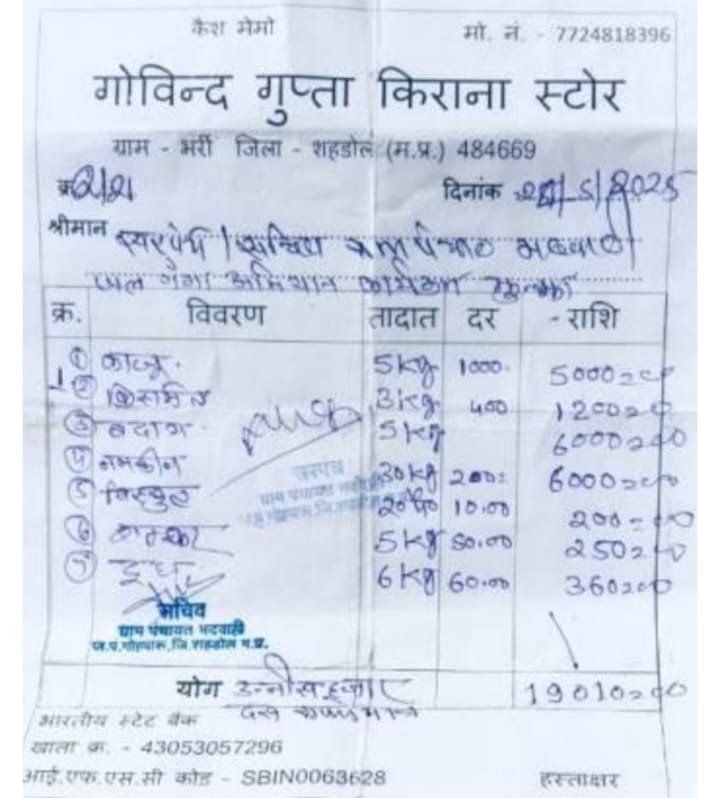 कैश मेमो मो. नं. - 7724818396
गोविन्द गुप्ता किराना स्टोर
ग्राम - भर्री जिला - शहडोल (म.प्र.) 484669
क्र दिनांक
श्रीमान सरपंच / सचिव ग्राम पंचायत भदवाही
जल गंगा अभियान कार्यक्रम
क्र. विवरण तादात दर राशि
① काजू 5kg 1000 5000=00
② किसमिस 3kg 400 1200=00
③ बदाम 5kg 6000=00
④ नमकीन 30kg 200= 6000=00
⑤ बिस्कुट 10.00 200=00
⑥ 5kg 50.00 250=00
⑦ दूध 6kg 60.00 360=00
सरपंच
ग्राम पंचायत भदवाही
सचिव
ग्राम पंचायत भदवाही
ज.प.गोहपारू,जि.शहडोल म.प्र.
योग उन्नीस हजार 19010=00
दस रुपये मात्र
भारतीय स्टेट बैंक
खाता क. - 43053057296
आई.एफ.एस.सी कोड - SBIN0063628 हस्ताक्षर